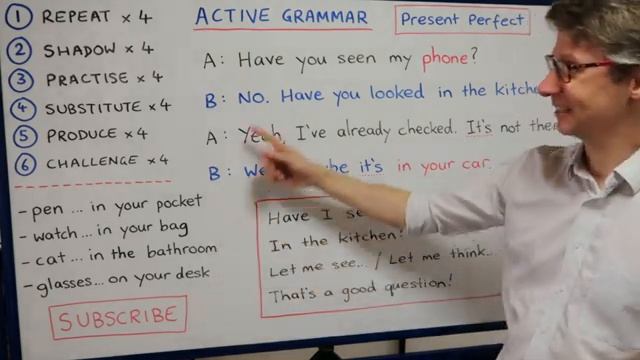 1 REPEAT x 4
2 SHADOW x 4
3 PRACTISE x 4
4 SUBSTITUTE x 4
5 PRODUCE x 4
6 CHALLENGE x 4
- pen ... in your pocket
- watch ... in your bag
- cat ... in the bathroom
- glasses ... on your desk
SUBSCRIBE
ACTIVE GRAMMAR
Present Perfect
A: Have you seen my phone?
B: NO. Have you looked in the
A: Yeah, I've already checked. It's not
B: it's in your car.
Have I
In the kitchen?
Let me see... / Let me think...
That's a good question!